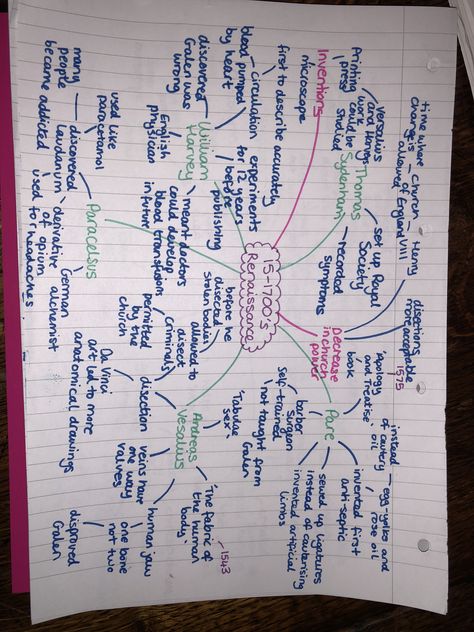 15-1700's
Renaissance
Inventions
microscope
Printing
press
versalius
and Harvey
work
could be
studied
Thomas
Sydenham
set up Royal
Society
Recorded
symptoms
Decrease
in church
power
time where
change is
allowed
church
of England
Henry
VIII
disections
more acceptable
Pare
1575
Apology
and Treatise
book
barber
Surgeon
self-trained
not taught from
Galen
instead
of cautery
oil
egg-yolks and
rose oil
invented first
anti-septic
sewed up ligatures
instead of cauterising
invented artificial
limbs
Andreas
Vesalius
'Tabulae
sex'
1543
'The fabric of
the human
body'
human jaw
one bone
not two
disproved
Galen
veins have
one way
valves
disection
permitted
by the
church
Da Vinci
art led to more
anatomical drawings
allowed to
disect
criminals
before he
disected
stolen bodies
William
Harvey
first to describe accurately
circulation
blood pumped
by heart
experiments
for 12 years
before
publishing
discovered
Galen was
wrong
English
physician
meant doctors
could develop
blood transfusions
in future
Paracelsus
German
alchemist
discovered
laudanum
derivative
of opium
used to
headaches
used like
paracetamol
many
people
became addicted